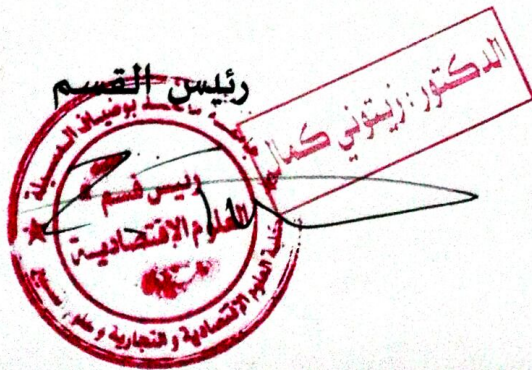 رئيس القسم
الدكتور: زيتوني كمال
جامعة محمد بوضياف المسيلة
رئيس قسم
العلوم الإقتصادية
كلية العلوم الإقتصادية و التجارية و علوم